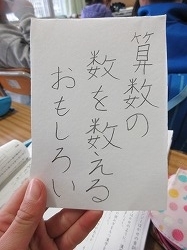 算数の
数を数える
おもしろい